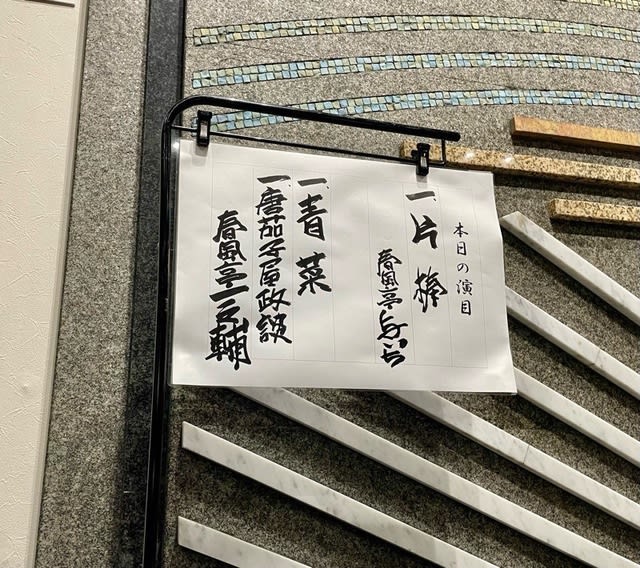 本日の演目
一、片棒
春風亭与いち
一、青菜
一、唐茄子屋政談
春風亭一之輔